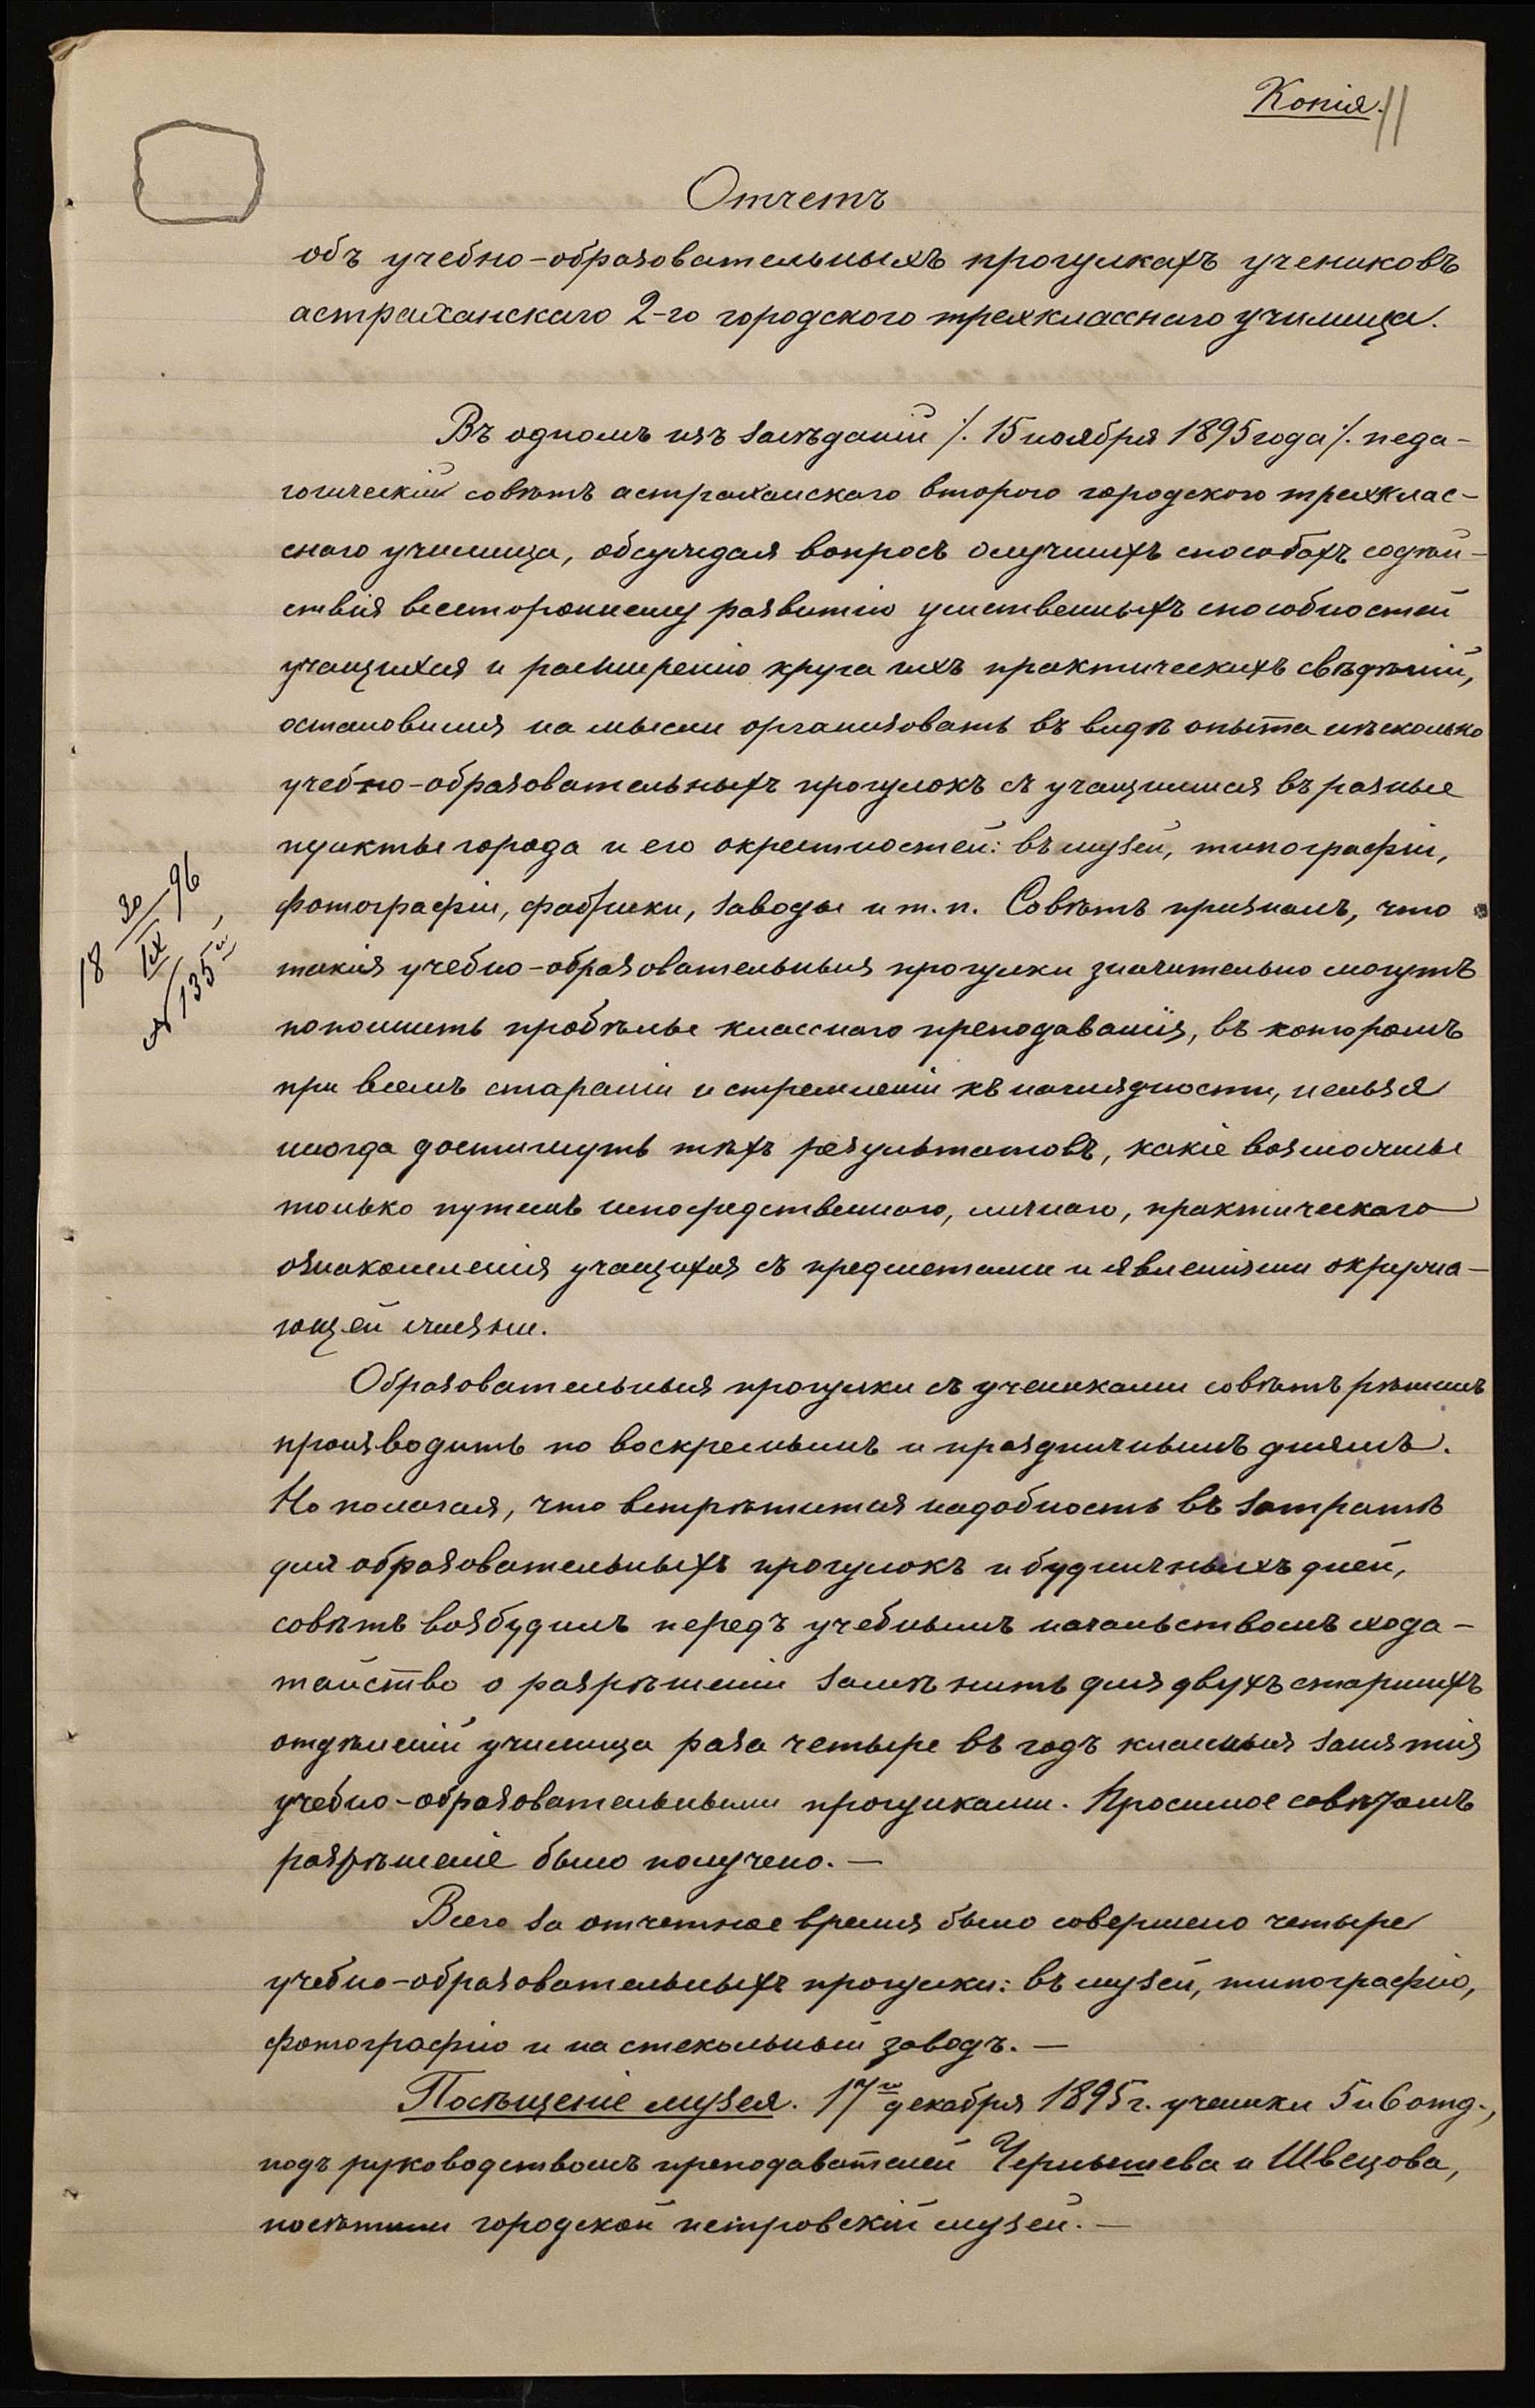 Копія. 11
Отчетъ
объ учебно-образовательныхъ прогулкахъ учениковъ
астраханскаго 2-го городского трехкласснаго училища.
Въ одномъ изъ засѣданій /. 15 ноября 1895 года /. педа-
гогическій совѣтъ астраханскаго второго городского трехклас-
снаго училища, обсуждая вопросъ о лучшихъ способахъ содѣй-
ствія всестороннему развитію умственныхъ способностей
учащихся и расширенію круга ихъ практическихъ свѣдѣній,
остановился на мысли организовать въ видѣ опыта нѣсколько
учебно-образовательныхъ прогулокъ съ учащимися въ разные
пункты города и его окрестностей: въ музей, типографіи,
фотографіи, фабрики, заводы и т. п. Совѣтъ призналъ, что
такія учебно-образовательныя прогулки значительно могутъ
пополнить пробѣлы класснаго преподаванія, въ которомъ
при всемъ стараніи и стремленіи къ наглядности, нельзя
иногда достигнуть тѣхъ результатовъ, какіе возможны
только путемъ непосредственнаго, личнаго, практическаго
ознакомленія учащихся съ предметами и явленіями окружа-
ющей жизни.
Образовательныя прогулки съ учениками совѣтъ рѣшилъ
производить по воскреснымъ и праздничнымъ днямъ.
Но полагая, что встрѣтится надобность въ затратѣ
для образовательныхъ прогулокъ и будничныхъ дней,
совѣтъ возбудилъ передъ учебнымъ начальствомъ хода-
тайство о разрѣшеніи замѣнить для двухъ старшихъ
отдѣленій училища раза четыре въ годъ классныя занятія
учебно-образовательными прогулками. Просимое совѣтомъ
разрѣшеніе было получено. —
Всего за отчетное время было совершено четыре
учебно-образовательныхъ прогулки: въ музей, типографію,
фотографію и на стекольный заводъ. —
Посѣщеніе музея. 17го декабря 1895 г. ученики 5 и 6 отд.,
подъ руководствомъ преподавателей Чернышева и Швецова,
посѣтили городской петровскій музей. —
18 30/IX 96
№ 135